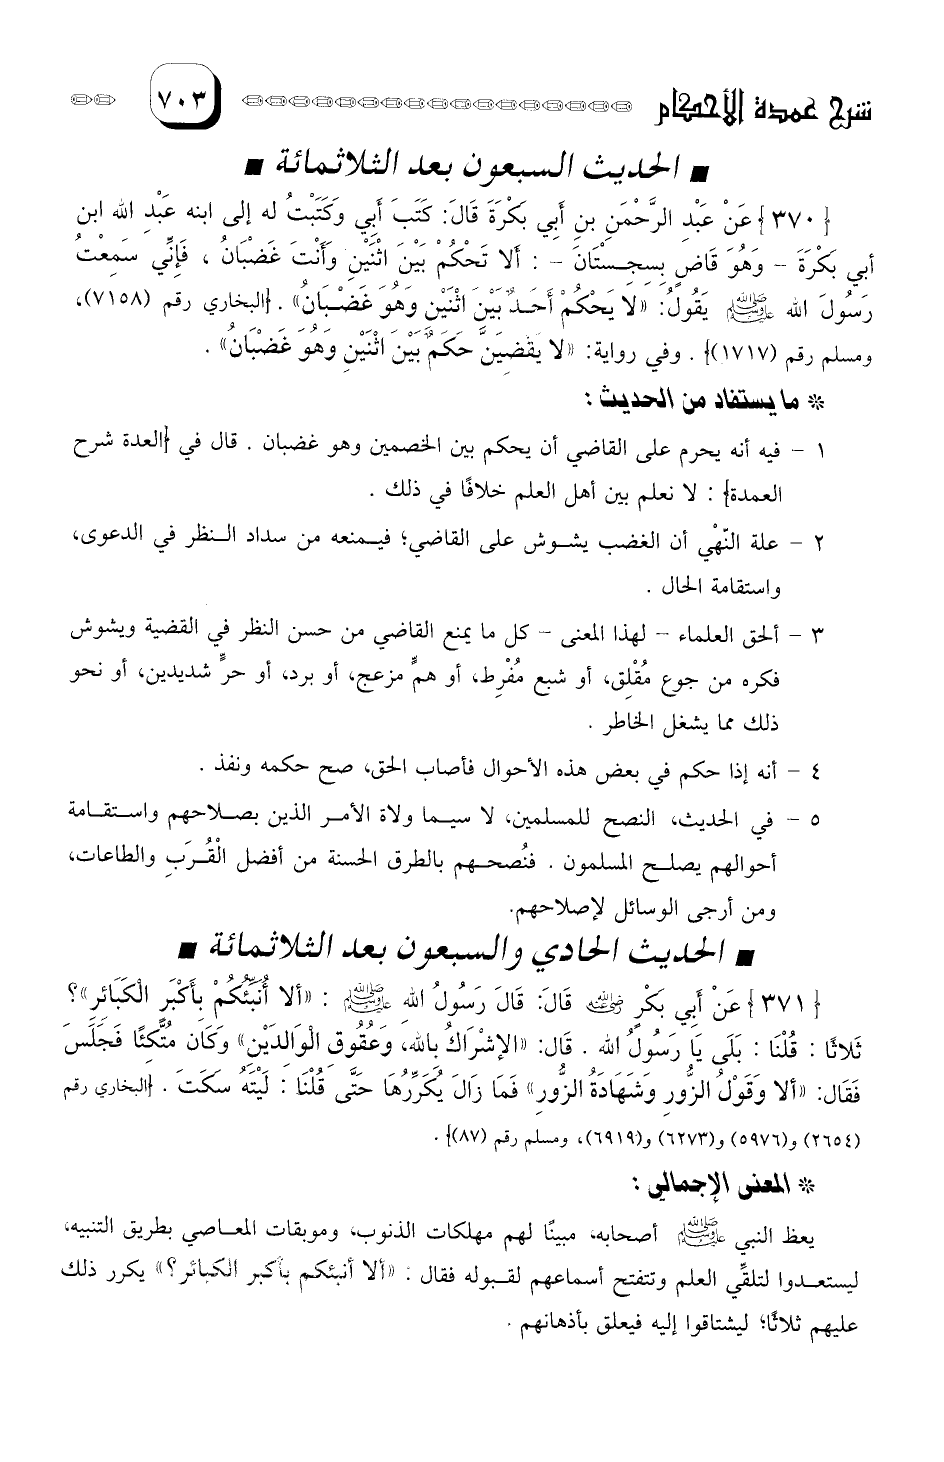 شرح عمدة الأحكام ٧٠٣
■ الحديث السبعون بعد الثلاثمائة ■
{٣٧٠} عَنْ عَبْدِ الرَّحْمَنِ بنِ أَبِي بَكْرَةَ قَالَ: كَتَبَ أَبِي وَكَتَبْتُ له إلى ابنه عَبْدِ الله ابن
أبي بَكْرَةَ - وَهُوَ قَاضٍ بِسِجِسْتَانَ - : أَلا تَحْكُمْ بَيْنَ اثْنَيْنِ وَأَنْتَ غَضْبَانُ ، فَإِنِّي سَمِعْتُ
رَسُولَ الله ﷺ يَقُولُ: «لا يَحْكُمْ أَحَدٌ بَيْنَ اثْنَيْنِ وَهُوَ غَضْبَانُ» . {البخاري رقم (٧١٥٨)،
ومسلم رقم (١٧١٧)} . وفي رواية: «لا يَقْضِيَنَّ حَكَمٌ بَيْنَ اثْنَيْنِ وَهُوَ غَضْبَانُ» .
* ما يستفاد من الحديث :
١ - فيه أنه يحرم على القاضي أن يحكم بين الخصمين وهو غضبان . قال في {العدة شرح
العمدة} : لا نعلم بين أهل العلم خلافًا في ذلك .
٢ - علة النَّهْي أن الغضب يشوش على القاضي؛ فيمنعه من سداد النظر في الدعوى،
واستقامة الحال .
٣ - ألحق العلماء - لهذا المعنى - كل ما يمنع القاضي من حسن النظر في القضية ويشوش
فكره من جوع مُقْلِق، أو شبع مُفْرِط، أو همٍّ مزعج، أو برد، أو حرٍّ شديدين، أو نحو
ذلك مما يشغل الخاطر .
٤ - أنه إذا حكم في بعض هذه الأحوال فأصاب الحق، صح حكمه ونفذ .
٥ - في الحديث، النصح للمسلمين، لا سيما ولاة الأمر الذين بصلاحهم واستقامة
أحوالهم يصلح المسلمون . فنُصحهم بالطرق الحسنة من أفضل الْقُرَبِ والطاعات،
ومن أرجى الوسائل لإصلاحهم.
■ الحديث الحادي والسبعون بعد الثلاثمائة ■
{٣٧١} عَنْ أَبِي بَكْرٍ رضي الله عنه قَالَ: قَالَ رَسُولُ الله ﷺ : «أَلا أُنَبِّئُكُمْ بِأَكْبَرِ الْكَبَائِرِ»؟
ثَلاثًا : قُلْنَا : بَلَى يَا رَسُولُ الله . قال: «الإِشْرَاكُ بِالله، وَعُقُوقِ الْوَالِدَيْنِ» وَكَان مُتَّكِئًا فَجَلَسَ
فَقَال: «أَلا وَقَوْلُ الزُّورِ وَشَهَادَةُ الزُّورِ» فَمَا زَالَ يُكَرِّرُهَا حَتَّى قُلْنَا : لَيْتَهُ سَكَتَ . {البخاري رقم
(٢٦٥٤) و(٥٩٧٦) و(٦٢٧٣) و(٦٩١٩)، ومسلم رقم (٨٧)} .
* المعنى الإجمالي :
يعظ النبي ﷺ أصحابه، مبينًا لهم مهلكات الذنوب، وموبقات المعاصي بطريق التنبيه،
ليستعدوا لتلقِّي العلم وتتفتح أسماعهم لقبوله فقال : «ألا أنبئكم بأكبر الكبائر؟» يكرر ذلك
عليهم ثلاثًا؛ ليشتاقوا إليه فيعلق بأذهانهم .